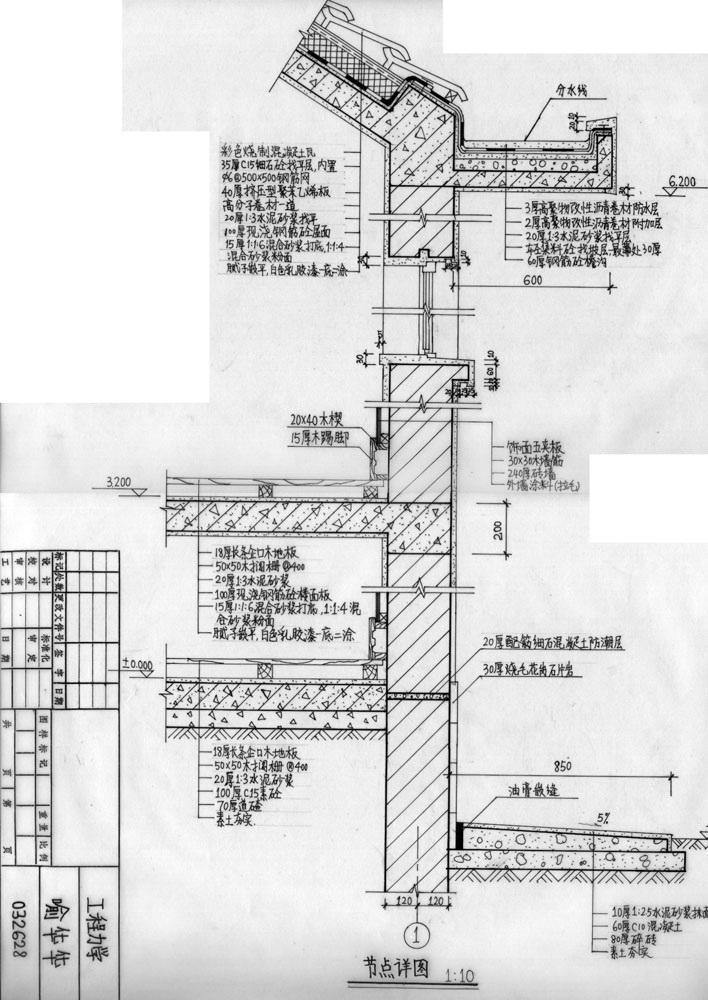 分水线
20
彩色烧制混凝土瓦
35厚C15细石砼找平层,内置
∅6@500X500钢筋网
40厚挤压型聚苯乙烯板
高分子卷材一道
20厚1:3水泥砂浆找平
100厚现浇钢筋砼屋面
15厚1:1:6混合砂浆打底,1:1:4
混合砂浆粉面
腻子嵌平,白色乳胶漆一底二涂
6.200
3厚高聚物改性沥青卷材防水层
2厚高聚物改性沥青卷材附加层
20厚1:3水泥砂浆找平层
轻浆料砼找坡层,最薄处30厚
60厚钢筋砼檐沟
600
30
10
60
20X40木楔
15厚木踢脚
饰面五夹板
30X30木墙筋
240厚砖墙
外墙涂料(拉毛)
3.200
200
18厚长条企口木地板
50X50木搁栅@400
20厚1:3水泥砂浆
100厚现浇钢筋砼楼面板
15厚1:1:6混合砂浆打底,1:1:4混
合砂浆粉面
腻子嵌平,白色乳胶漆一底二涂
±0.000
20厚配筋细石混凝土防潮层
30厚烧毛花岗石片岩
18厚长条企口木地板
50X50木搁栅@400
20厚1:3水泥砂浆
100厚C15素砼
70厚道碴
素土夯实
850
油膏嵌缝
5%
10厚1:2.5水泥砂浆抹面
60厚C10混凝土
80厚碎砖
素土夯实
120 120
1
节点详图 1:10
标记 处数 更改文件号 签字 日期
设计 标准化
校对 审定
审核
工艺 日期
图样标记 重量 比例
共 页 第 页
工程力学
喻华华
032628